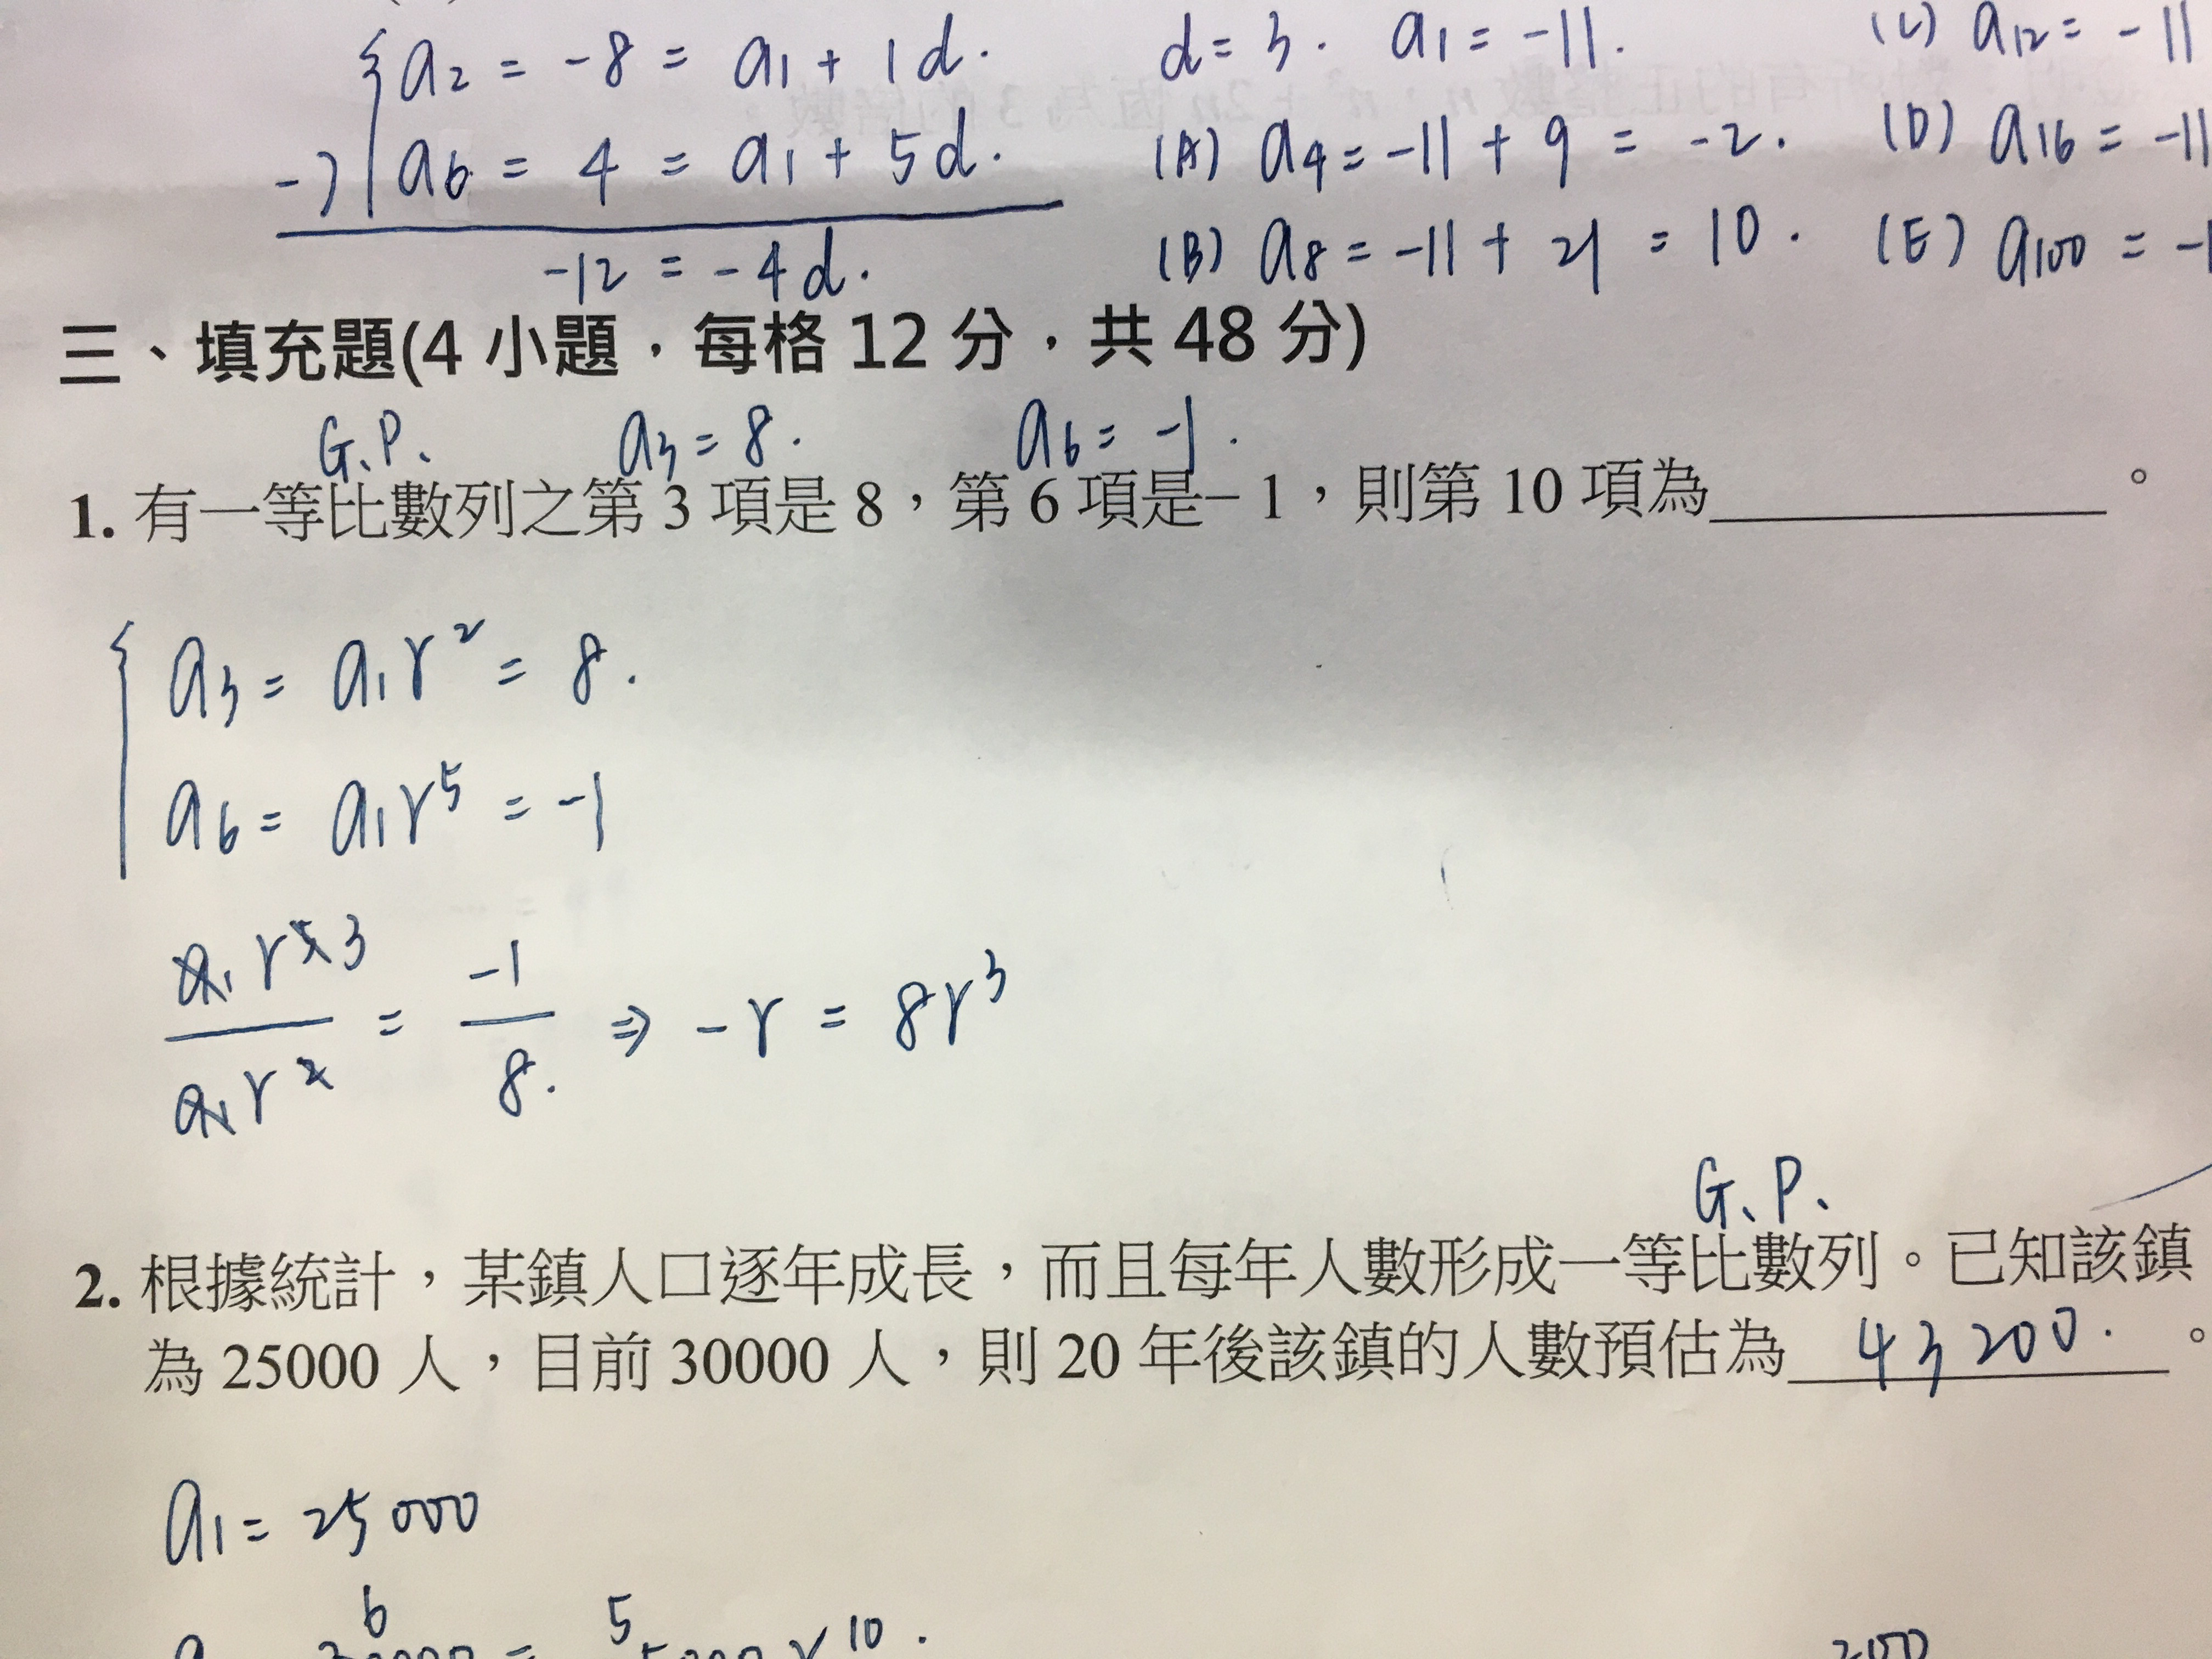 a₂ = -8 = a₁ + 1d.
-) a₆ = 4 = a₁ + 5d.
-12 = -4d.
d = 3. a₁ = -11.
(A) a₄ = -11 + 9 = -2.
(B) a₈ = -11 + 21 = 10.
(C) a₁₂ = -11
(D) a₁₆ = -11
(E) a₁₀₀ = -1
三、填充題(4 小題,每格 12 分,共 48 分)
G.P. a₃ = 8. a₆ = -1.
1. 有一等比數列之第 3 項是 8,第 6 項是– 1,則第 10 項為__________。
a₃ = a₁r² = 8.
a₆ = a₁r⁵ = -1
a₁r⁵ 3 / a₁r² = -1 / 8. ⇒ -r = 8r³
G.P.
2. 根據統計,某鎮人口逐年成長,而且每年人數形成一等比數列。已知該鎮
為 25000 人,目前 30000 人,則 20 年後該鎮的人數預估為 43200. 。
a₁ = 25000
6 5